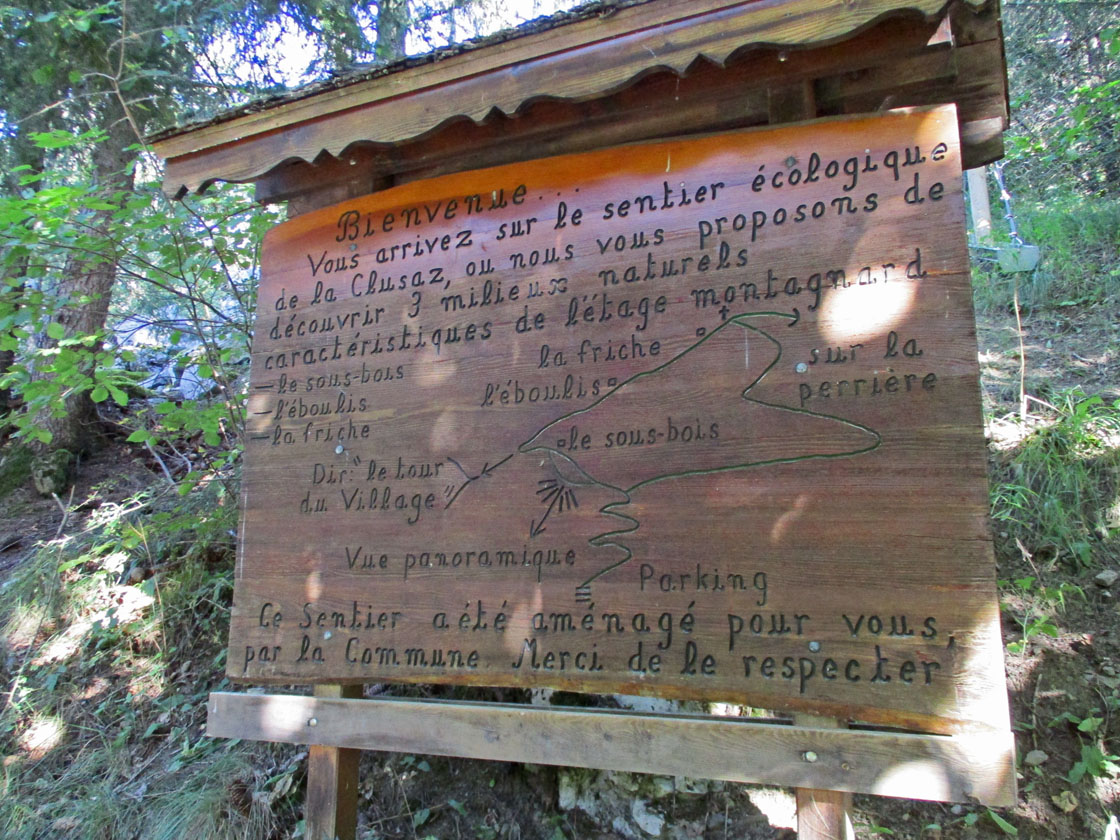 Bienvenue...
Vous arrivez sur le sentier écologique
de la Clusaz, ou nous vous proposons de
découvrir 3 milieux naturels
caractéristiques de l'étage montagnard
-le sous-bois
-l'éboulis
-la friche
la friche
l'éboulis
sur la
perrière
le sous-bois
Dir: "le tour
du Village"
Vue panoramique
Parking
Ce Sentier a été aménagé pour vous,
par la Commune. Merci de le respecter!